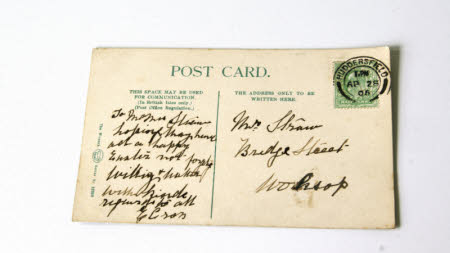 POST CARD.
THIS SPACE MAY BE USED
FOR COMMUNICATION.
(In British Isles only.)
(Post Office Regulation).
THE ADDRESS ONLY TO BE
WRITTEN HERE.
HUDDERSFIELD
AP 25
06
To Mr & Mrs Straw
hoping they have
not a happy
Easter not forgetting
with kinds
regards to all
Mrs Straw
Bridge Street
Worksop